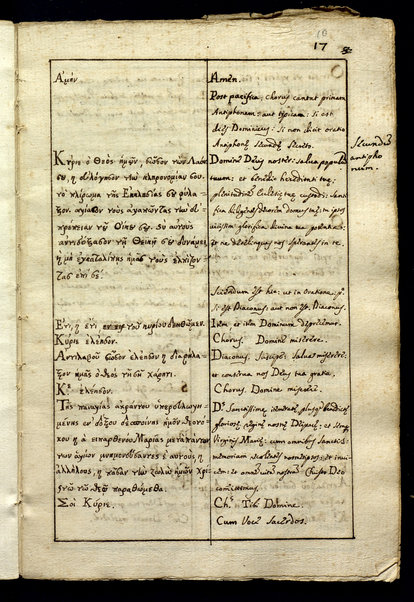 10
17
Ἀμήν.
Κύριε ὁ Θεὸς ἡμῶν, σῶσον τὸν λαόν
σου, καὶ εὐλόγησον τὴν κληρονομίαν σου.
τὸ πλήρωμα τῆς Ἐκκλησίας σου φύλα-
ξον. ἁγίασον τοὺς ἀγαπῶντας τὴν εὐ-
πρέπειαν τοῦ οἴκου σου. Σὺ αὐτοὺς
ἀντιδόξασον τῇ Θεϊκῇ σου δυνάμει,
καὶ μὴ ἐγκαταλίπῃς ἡμᾶς τοὺς ἐλπίζον-
τας ἐπὶ σέ.
Ἔτι, καὶ ἔτι ἐν εἰρήνῃ τοῦ κυρίου δεηθῶμεν.
Κύριε ἐλέησον.
Ἀντιλαβοῦ σῶσον ἐλέησον καὶ διαφύλα-
ξον ἡμᾶς ὁ Θεὸς τῇ σῇ χάριτι.
Κ. ἐλέησον.
Τῆς παναγίας ἀχράντου ὑπερευλογη-
μένης ἐνδόξου δεσποίνης ἡμῶν Θεοτό-
κου καὶ ἀειπαρθένου Μαρίας μετὰ πάντων
τῶν ἁγίων μνημονεύσαντες ἑαυτοὺς καὶ
ἀλλήλους, καὶ πᾶσαν τὴν ζωὴν ἡμῶν Χρι-
στῷ τῷ Θεῷ παραθώμεθα.
Σοὶ Κύριε.
Amen.
Post pacifica, Chorus cantat primam
Antiphonam: aut typicam: Si est
dies Dominicus: Si non dicit oratio
Antiphonae secundae secreto.
Domine Deus noster: salva populum
tuum: et benedic hereditati tuae
plenitudinem Ecclesiae tuae custodi: Sancti-
fica diligentes decorem domus tuae: tu ipsos
vicissim glorifica divina tua potentia:
et ne derelinquas nos sperantes in te.
Sciendum est hoc: ut in oratione
Si est Diaconus, aut non est, Diaconus.
Item, et item Dominum deprecemur.
Chorus. Domine miserere.
Diaconus. Suscipe: Salva: miserere:
et conserva nos Deus tua gratia.
Chorus. Domine miserere.
D. Santissimae
gloriosae nostrae Deiparae: et semp.
Virginis Mariae: cum omnibus Sanctis
memoriam nosmetipsos: et invi-
cem: et omnem vitam nostram Christo Deo
commendemus.
Ch. Tibi Domine.
Cum voce Sacerdos.
Secundae
antipho
narum.